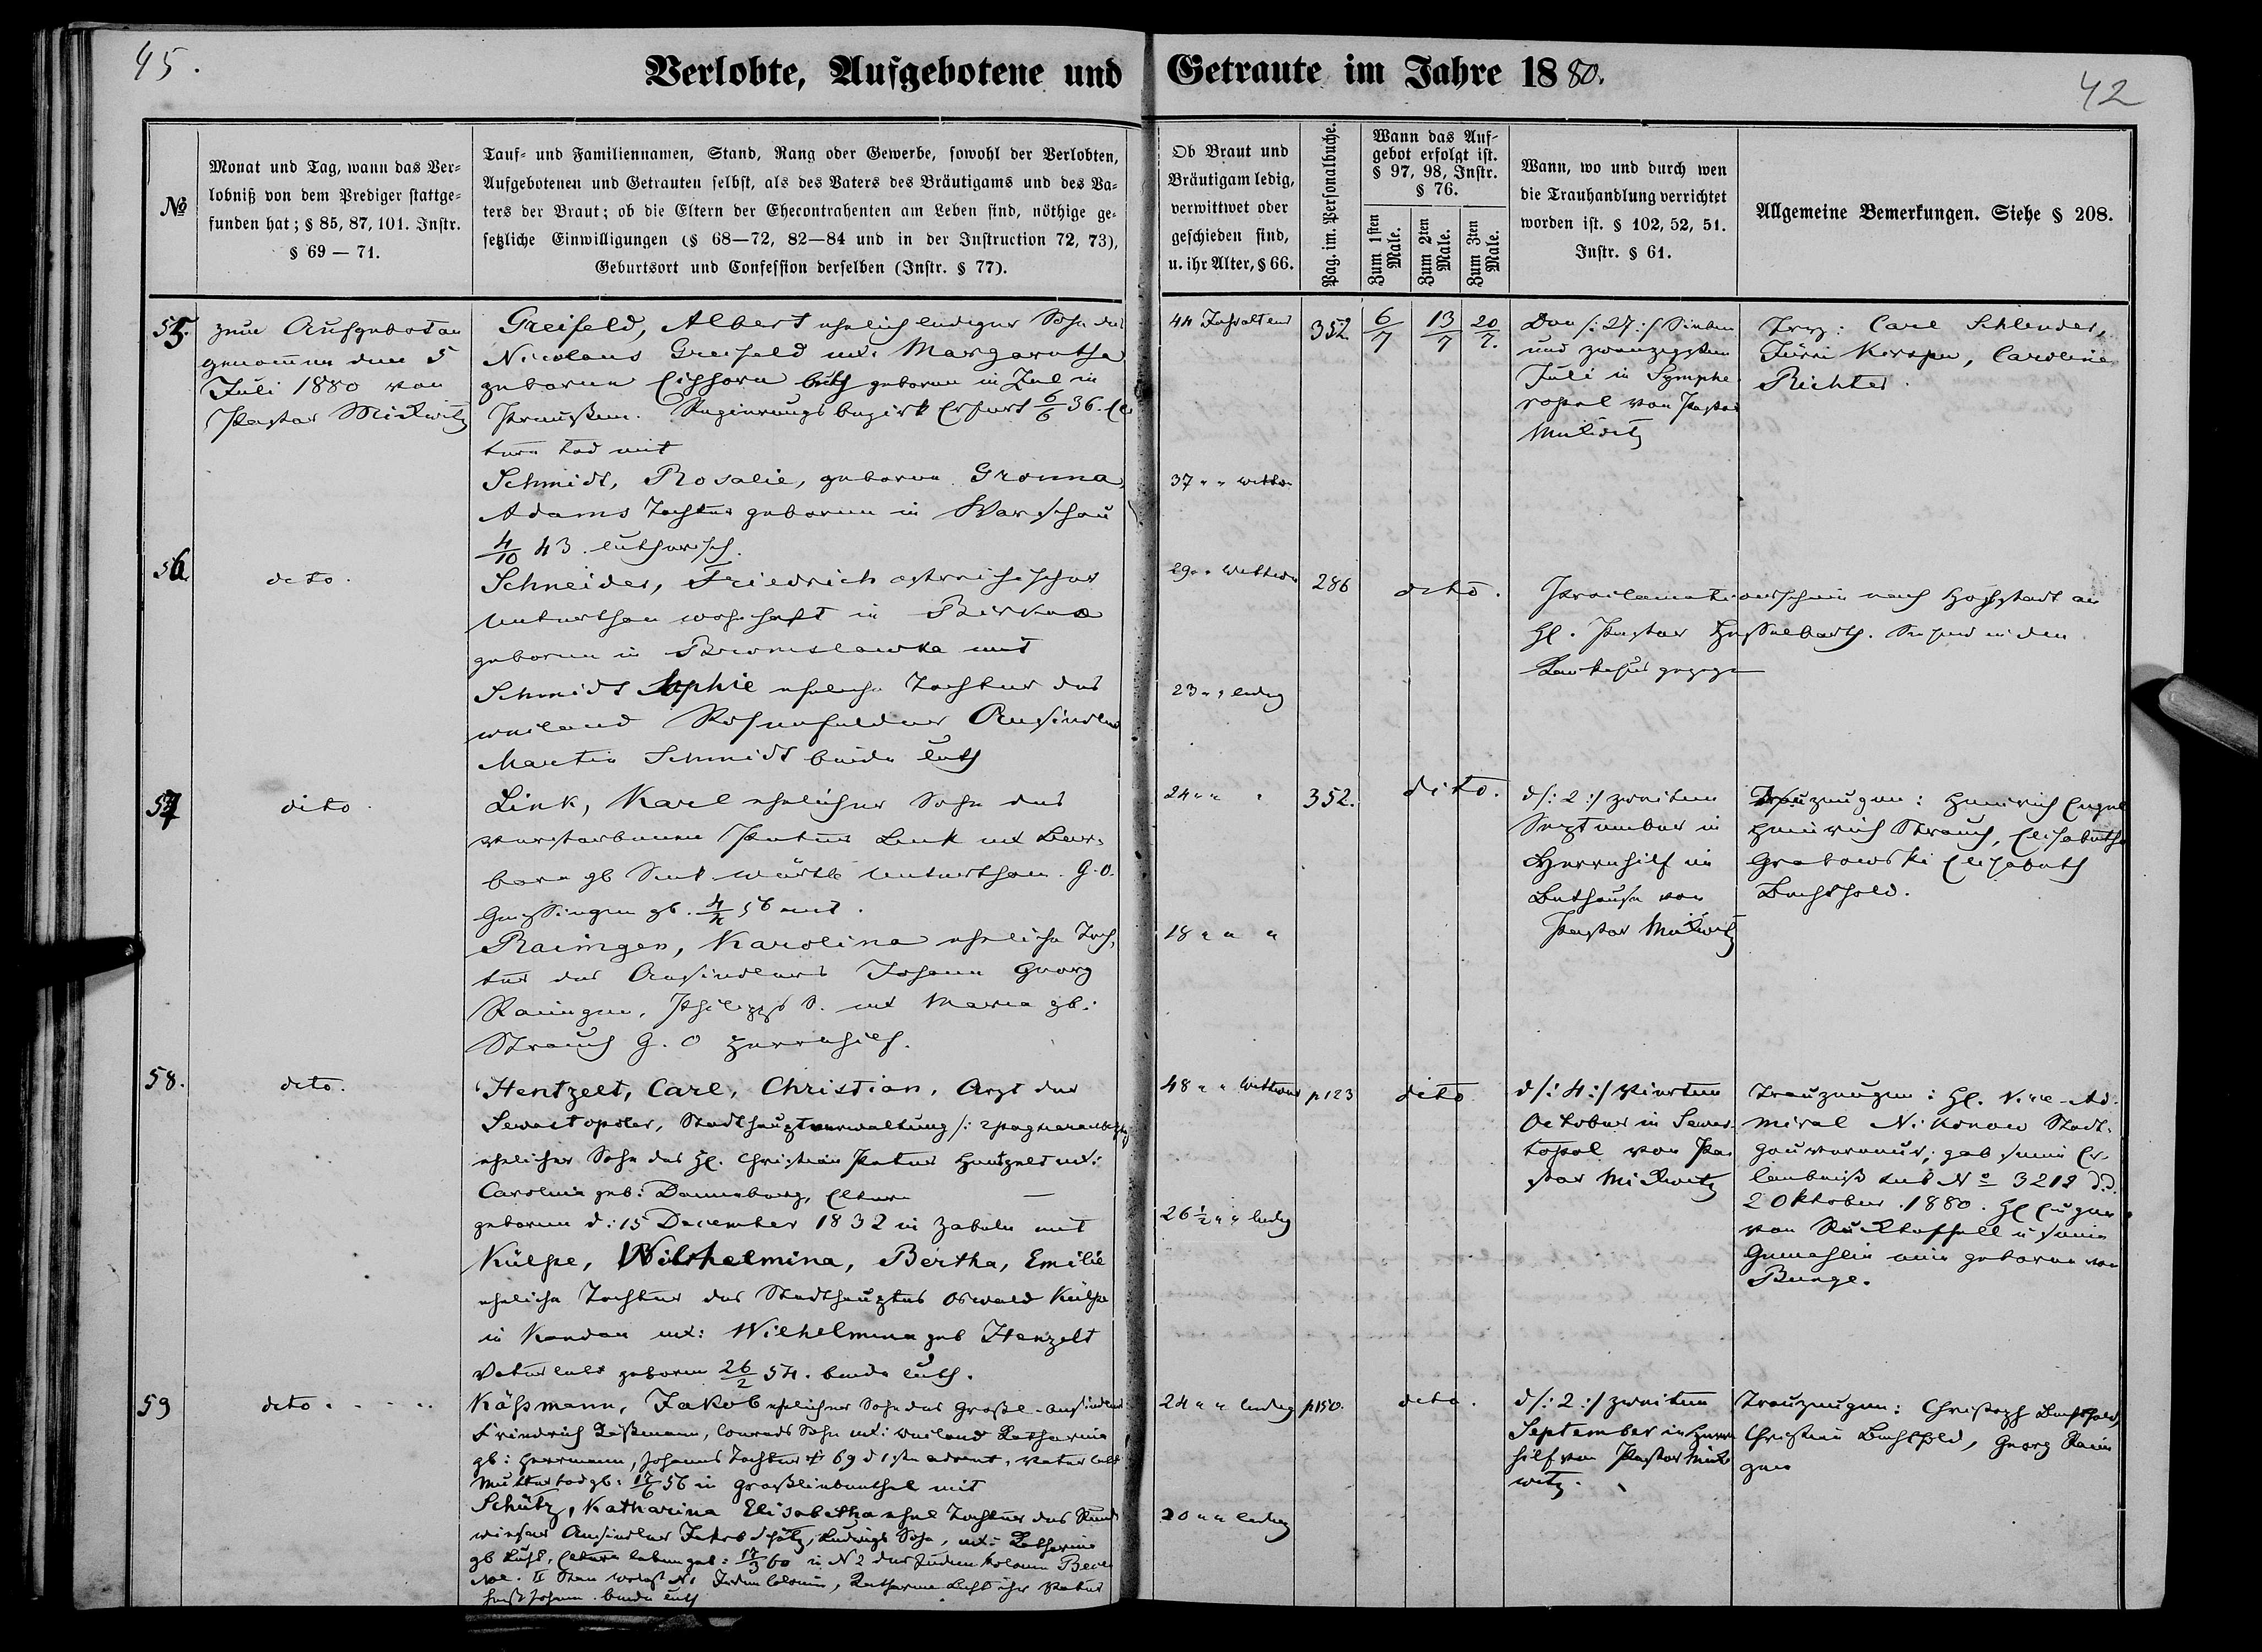 45.
Verlobte, Aufgebotene und Getraute im Jahre 1880.
42
№
Monat und Tag, wann das Ver-
lobniß von dem Prediger stattge-
funden hat; § 85, 87, 101. Instr.
§ 69 — 71.
Tauf- und Familiennamen, Stand, Rang oder Gewerbe, sowohl der Verlobten,
Aufgebotenen und Getrauten selbst, als des Vaters des Bräutigams und des Va-
ters der Braut; ob die Eltern der Ehecontrahenten am Leben sind, nöthige ge-
setzliche Einwilligungen (§ 68—72, 82—84 und in der Instruction 72, 73),
Geburtsort und Confession derselben (Instr. § 77).
Ob Braut und
Bräutigam ledig,
verwittwet oder
geschieden sind,
u. ihr Alter, § 66.
Pag. im. Personalbuche.
Wann das Auf-
gebot erfolgt ist.
§ 97, 98, Instr.
§ 76.
Zum 1sten Male.
Zum 2ten Male.
Zum 3ten Male.
Wann, wo und durch wen
die Trauhandlung verrichtet
worden ist. § 102, 52, 51.
Instr. § 61.
Allgemeine Bemerkungen. Siehe § 208.
55.
zum Aufgebot an
genommen den 5
Juli 1880 von
Pastor Mickwitz
Greifeld, Albert ehelich lediger Sohn des
Nicolaus Greifeld ux: Margaretha
geborne Eichhorn luth geboren in in
Preußen. Regierungsbezirk Erfurt 6/6 36.
tern tod mit
Schmidt, Rosalie, geborne Gronna,
Adams Tochter geboren in Warschau
4/10 43. lutherisch.
44 Jahr alt
37 " "
352
6/7
13/7
20/7.
Den /: 27 :/ Sieben
und zwanzigsten
Juli in Symphe
ropol von Pastor
Mickwitz
Trzg: Carl Schlender,
Jürri Kerspu, Caroline
Richter.
56.
deto.
Schneider, Friedrich östreichischer
Unterthan wohnhaft in
geboren in Bronislawka mit
Schmidt Sophie eheliche Tochter des
weiland Rosenfelder Ansiedlers
Martin Schmidt beide luth
29 " " Wittwer
23 " " ledig
286
deto.
Proclamationsschein nach Hochstadt an
H. Pastor Hesselbarth.
57
dito
Link, Karl ehelicher Sohn des
verstorbenen Peter Link ux Bar-
bara gb würtb Unterthan. G.O.
56 mit.
Raingen, Karolina eheliche Toch-
ter des Ansiedlers Johann Georg
Raingen, Philipps S. ux Maria gb:
Strauch G. O Herrnhilf.
24 " " "
18 " " "
352.
dito.
d /: 2 :/ zweiten
September in
Herrnhilf im
Bethause von
Pastor Mickwitz
Trauzeugen: Heinrich Engel
Heinrich Strauch, Elisabetha
Grabowski Elisabeth
Bechthold.
58.
deto.
Hentzelt, Carl, Christian, Arzt der
Sewastopoler, Stadthauptverwaltung
ehelicher Sohn des H. Christian Peter Hentzelt ux:
Carolina geb: Danneberg, Eltern —
geboren d: 15 December 1832 in Zabeln mit
Külpe, Wilhelmina, Bertha, Emilie
eheliche Tochter des Stadthauptes Oswald Külpe
in Kandau ux: Wilhelmina geb Henzelt
Vater lebt geboren 26/2 54. beide luth.
48 " " Wittwer
26 1/2 " " ledig
p 123
deto
d /: 4 :/ Vierten
October in Sewas
topol von Pa
stor Mickwitz
Trauzeugen: H. Vice-Ad-
miral Nikonow Stadt-
gouverneur, gab seine Er-
laubniß sub № 3212 d.d.
2 Oktober. 1880. H Eugen
von Rückteschell u seine
Gemahlin eine geborne von
Bunge.
59
deto.
Käßmann, Jakob ehelicher Sohn des Großl. Ansiedlers
Friedrich Käßmann, Conrads Sohn ux: weiland Katharina
gb: Herrmann, Johanns Tochter † 69 d 1sten advent, Vater lebt
Mutter tod gb: 17/6 56 in Großliebenthal mit
Schütz, Katharina Elisabetha ehel Tochter des
Ansiedlers Jakob Schütz, Ludwigs Sohn, ux: Katharina
gb Eltern leben geb: 17/3 60 in N 2 der Judenkolonie
Katharina
Johann. beide luth
24 " " ledig
20 " " ledig
p 150.
deto.
d /: 2 :/ zweiten
September in Herrn
hilf von Pastor Mick
witz.
Trauzeugen: Christoph Bechthold,
Christian Bechthold, Georg Rain
gen